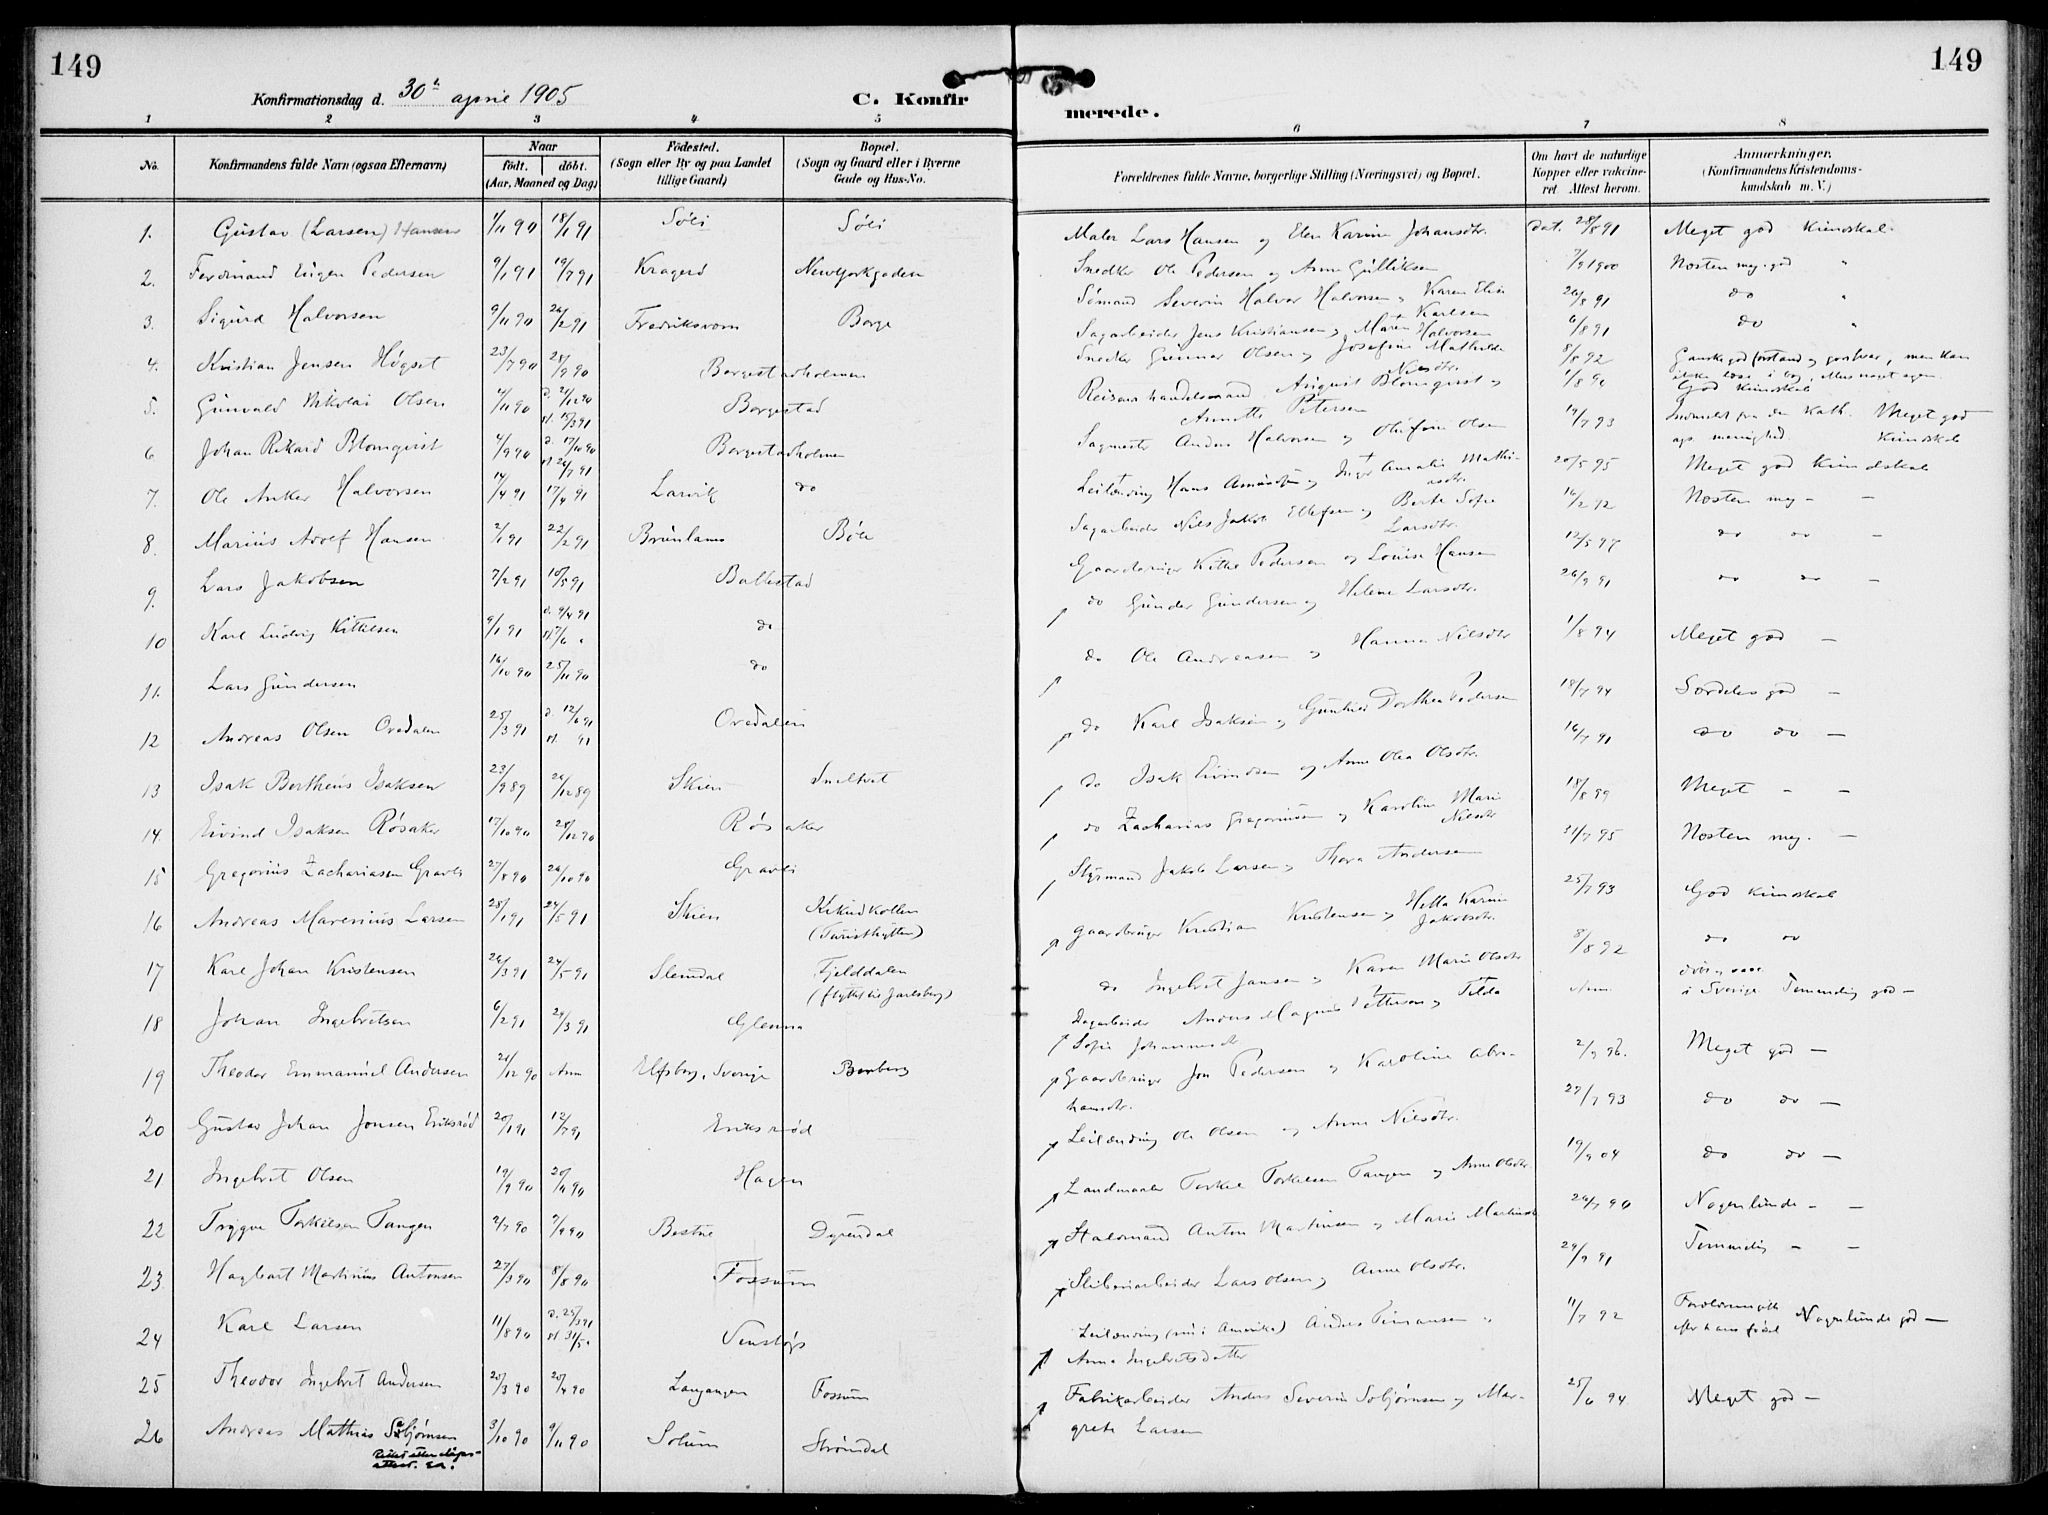 149
149
Konfirmationsdag d. 30te april 1905
C. Konfir
merede.
1 2 3 4 5 6 7 8
No.
Konfirmandens fulde Navn (ogsaa Efternavn)
Naar
født. døbt.
(Aar, Maaned og Dag)
Fødested.
(Sogn eller By og paa Landet
tillige Gaard)
Bopæl.
(Sogn og Gaard eller i Byerne
Gade og Hus-No.
Forældrenes fulde Navne, borgerlige Stilling (Næringsvei) og Bopæl.
Om havt de naturlige
Kopper eller vakcine-
ret Attest herom.
Anmærkninger.
(Konfirmandens Kristendoms-
kundskab m. V.)
1. Gustav (Larsen) Hansen 1/11 90 18/1 91 Søli Søli Maler Lars Hansen og Elen Karine Johansdtr. dat. 28/8 91 Meget god Kundskab
2. Ferdinand Eugen Pedersen 9/1 91 19/7 91 Kragerø Newyorkgaden Snedker Ole Pedersen og Anne Gulliksen 7/9 1900 Næsten meg. god "
3. Sigurd Halvorsen 9/11 90 26/2 91 Fredriksværn Borge Sømand Severin Halvor Halvorsen og Karen Elise Karlsen 26/8 91 do "
4. Kristian Jensen Høgset 23/7 90 28/9 90 Borgestadholmen Sagarbeider Jens Kristiansen og Maren Halvorsen 6/8 91 do "
5. Gunvald Nikolai Olsen 4/11 90 d. 21/12 90 st. 15/3 91 Borgestad Snedker Gunnar Olsen og Josefine Mathilde Nilsdtr. 8/8 92 Ganske god forstand og gudsfrygt, men kan
ikke læse i bog,
6 Johan Rikard Blomqvist 4/9 90 d. 17/10 90 st. 26/7 91 Borgestadholmen Reisende handelsmand August Blomqvist og
Annette Petersen God kundskab
7. Ole Anker Halvorsen 14/4 91 17/4 91 Larvik do Sagmester Anders Halvorsen og Olefine Olsen 19/7 93 Indmeldt fra den kath. ap. menighed. Meget god Kundskab
8. Marius Adolf Hansen 2/1 91 22/2 91 Brunlanes Bøle Leilænding Hans Amundsen og Inger Amalie Mathiasdtr. 20/5 95 Meget god Kundskab
9. Lars Jakobsen 7/2 91 10/5 91 Ballestad Sagarbeider Nils Jakob Ellefsen og Berte Sofie Larsdtr. 16/2 92 Næsten meg — —
10 Karl Ludvig Kittilsen 9/1 91 d. 9/4 91 st. 7/6 " do Gaardbruger Kittil Pedersen og Louise Hansen 12/5 97 do do —
11. Lars Gundersen 16/10 90 25/11 90 do do Gunder Gundersen og Helene Larsdtr. 26/9 91 do do —
12 Andreas Olsen Oredalen 25/3 91 d. 12/6 91 st. 91 Oredalen do Ole Andreasen og Hanna Nilsdtr 1/8 94 Meget god —
13 Isak Bertheus Isaksen 23/9 89 26/12 89 Skien Sneltvet do Karl Isaksen og Gunhild Dorthea Pedersen 18/7 94 Særdeles god —
14. Eivind Isaksen Røsaker 17/10 90 28/12 90 Røsaker do Isak Eivindsen og Anne Olea Olsdtr. 16/7 91 do do —
15 Gregorius Zachariasen Gravli 27/8 90 26/10 90 Gravli do Zacharias Gregoriusen og Karoline Marie Nilsdtr 18/8 99 Meget — —
16 Andreas Marenius Larsen 28/1 91 24/5 91 Skien Kikudkollen
(Turisthytten) Styrmand Jakob Larsen og Thora Andersen 31/7 95 Næsten meg. —
17 Karl Johan Kristensen 26/3 91 24/5 91 Slemdal Fjelddalen
(flyttet til Jarlsberg) Gaardbruger Kristian Kristensen og Hella Karine Jakobsdtr. 25/7 93 God kundskab
18 Johan Ingebretsen 6/2 91 29/3 91 Glenna do Ingebret Jansen og Karen Marie Olsdtr 8/8 92 do do
19 Theodor Emmanuel Andersen 21/12 90 Anm Elfsborg, Sverige Borberg Dagarbeider Anders Magnus Petterson og Tilda
Sofie Johannesdtr Anm. i Sverige Temmelig god —
20 Gustav Johan Jonsen Eriksrød 20/1 91 12/7 91 Eriksrød Gaardbruger Jon Pedersen og Karoline Abra-
hamsdtr. 2/9 96. Meget god —
21 Ingebret Olsen 19/9 90 20/11 90 Hagen Leilænding Ole Olsen og Anne Nilsdtr. 27/7 93 do do —
22 Trygve Torkilsen Tangen 2/7 90 7/9 90 Bestue Dyrendal Landmaaler Torkil Torkilsen Tangen og Anne Olsdtr. 19/9 04 do do —
23 Hagbart Martinius Antonsen 27/3 90 8/8 90 Fossum Staldmand Anton Martinsen og Marie Martinsd 26/7 90 Nogenlunde — —
24 Karl Larsen 11/8 90 d. 25/3 91 st. 31/5 " Venstøp Sliberiarbeider Lars Olsen og Anne Olsdtr. 29/9 91 Temmelig — —
25 Theodor Ingebret Andersen 25/3 90 25/4 90 Langangen Fossum Leilænding (nu i Amerika) Anders Timansen og
Anna Ingebretsdatter 11/7 92 Forældrene gift
efter hans fødsel Nogenlunde god —
26 Andreas Mathias Solbjørnsen 3/10 90 9/11 90 Solum Strømdal Fabrikarbeider Anders Severin Solbjørnsen og Mar-
grete Larsen 25/6 94 Meget god —
Rettet efter daabs-
attest.